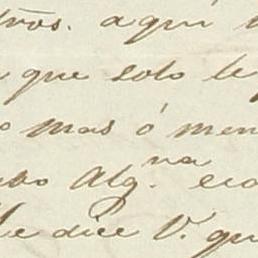 tr̃os. aqui
que solo le
mas ó men
Alg.na eco
le dice V. qu